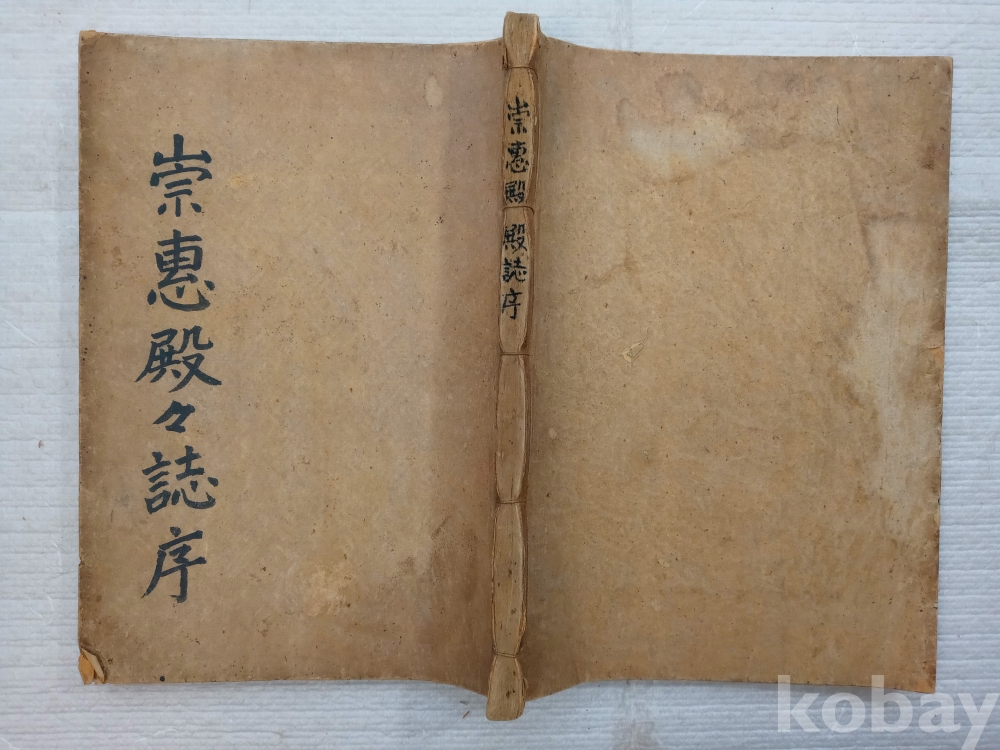 崇惠殿々誌序
崇惠殿殿誌序
kobay